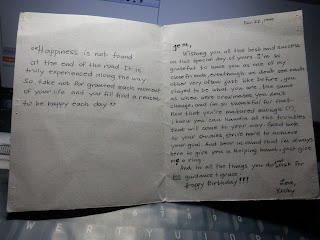 "Happiness is not found
at the end of the road. It is
truly experienced along the way.
So, take not for granted each moment
of your life and you'll find a reason
to be happy each day."
Wishing you all the best and success
on this special day of yours. I'm so
grateful to have you as one of my
close friends, eventhough we don't see each
other very often just like before, you
stayed to be what you are, the same
as when were croommates. You didn't
change, and I'm so thankful for that.
Now that you're matured enough
I know you can handle all the troubles
that will come to your way. Good luck
to your exams, strive more to achieve
your goal. And bear in mind that I'm always
here to give you a helping hand, just give
me a ring.
And in all the things you do wish for
guidance & grace.
Happy Birthday!!!
Love,